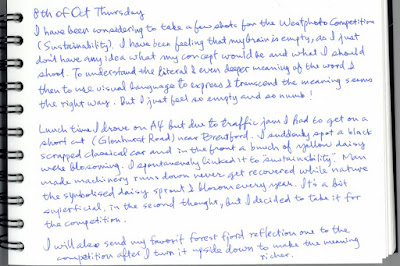 8th of Oct Thursday
I have been considering to take a few shots for the Westphoto Competition
(Sustainability). I have been feeling that my brain is empty, as I just
don't have any idea what my concept would be and what I should
shoot. To understand the literal & even deeper meaning of the word &
then to use visual language to express & transcend the meaning seems
the right way. But I just feel so empty and so numb!
Lunch time I drove on A4 but due to traffic jam I had to get on a
short cut (Glenhurst Road) near Brentford. I suddenly spot a black
scrapped classical car and in the front a bunch of yellow daisy
were blossoming. I spontaneously linked it to "sustainability". Man
made machinery runs down never get recovered while nature
the symbolised daisy sprout & blossom every year. It's a bit
superficial, in the second thought, but I decided to take it for
the competition.
I will also send my favorit forest fjord reflection one to the
competition after I turn it upside down to make the meaning
richer.